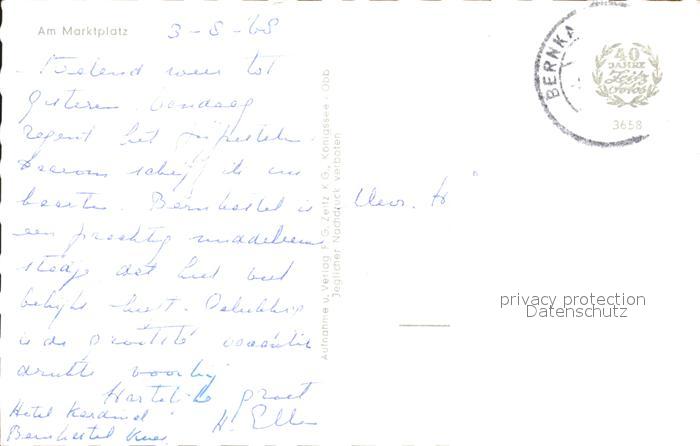 Am Marktplatz
3-8-68
weer tot
gisteren Vandaag
regent het pijpestelen.
Daarom schrijf ik nu
kaarten. Bernkastel is
een prachtig middeleeuws
stadje dat heel veel
bekijks heeft. Gelukkig
is de grootste vacantie
drukte voorbij
Hartelijke groet
Hotel Kardinal
H. Ellen
Bernkastel Kues
Aufnahme u. Verlag P.G. Zeitz K.G., Königssee-Obb
Jeglicher Nachdruck verboten
BERNKA
40
JAHRE
Zeitz
Fotos
3658
Mevr. H
privacy protection
Datenschutz